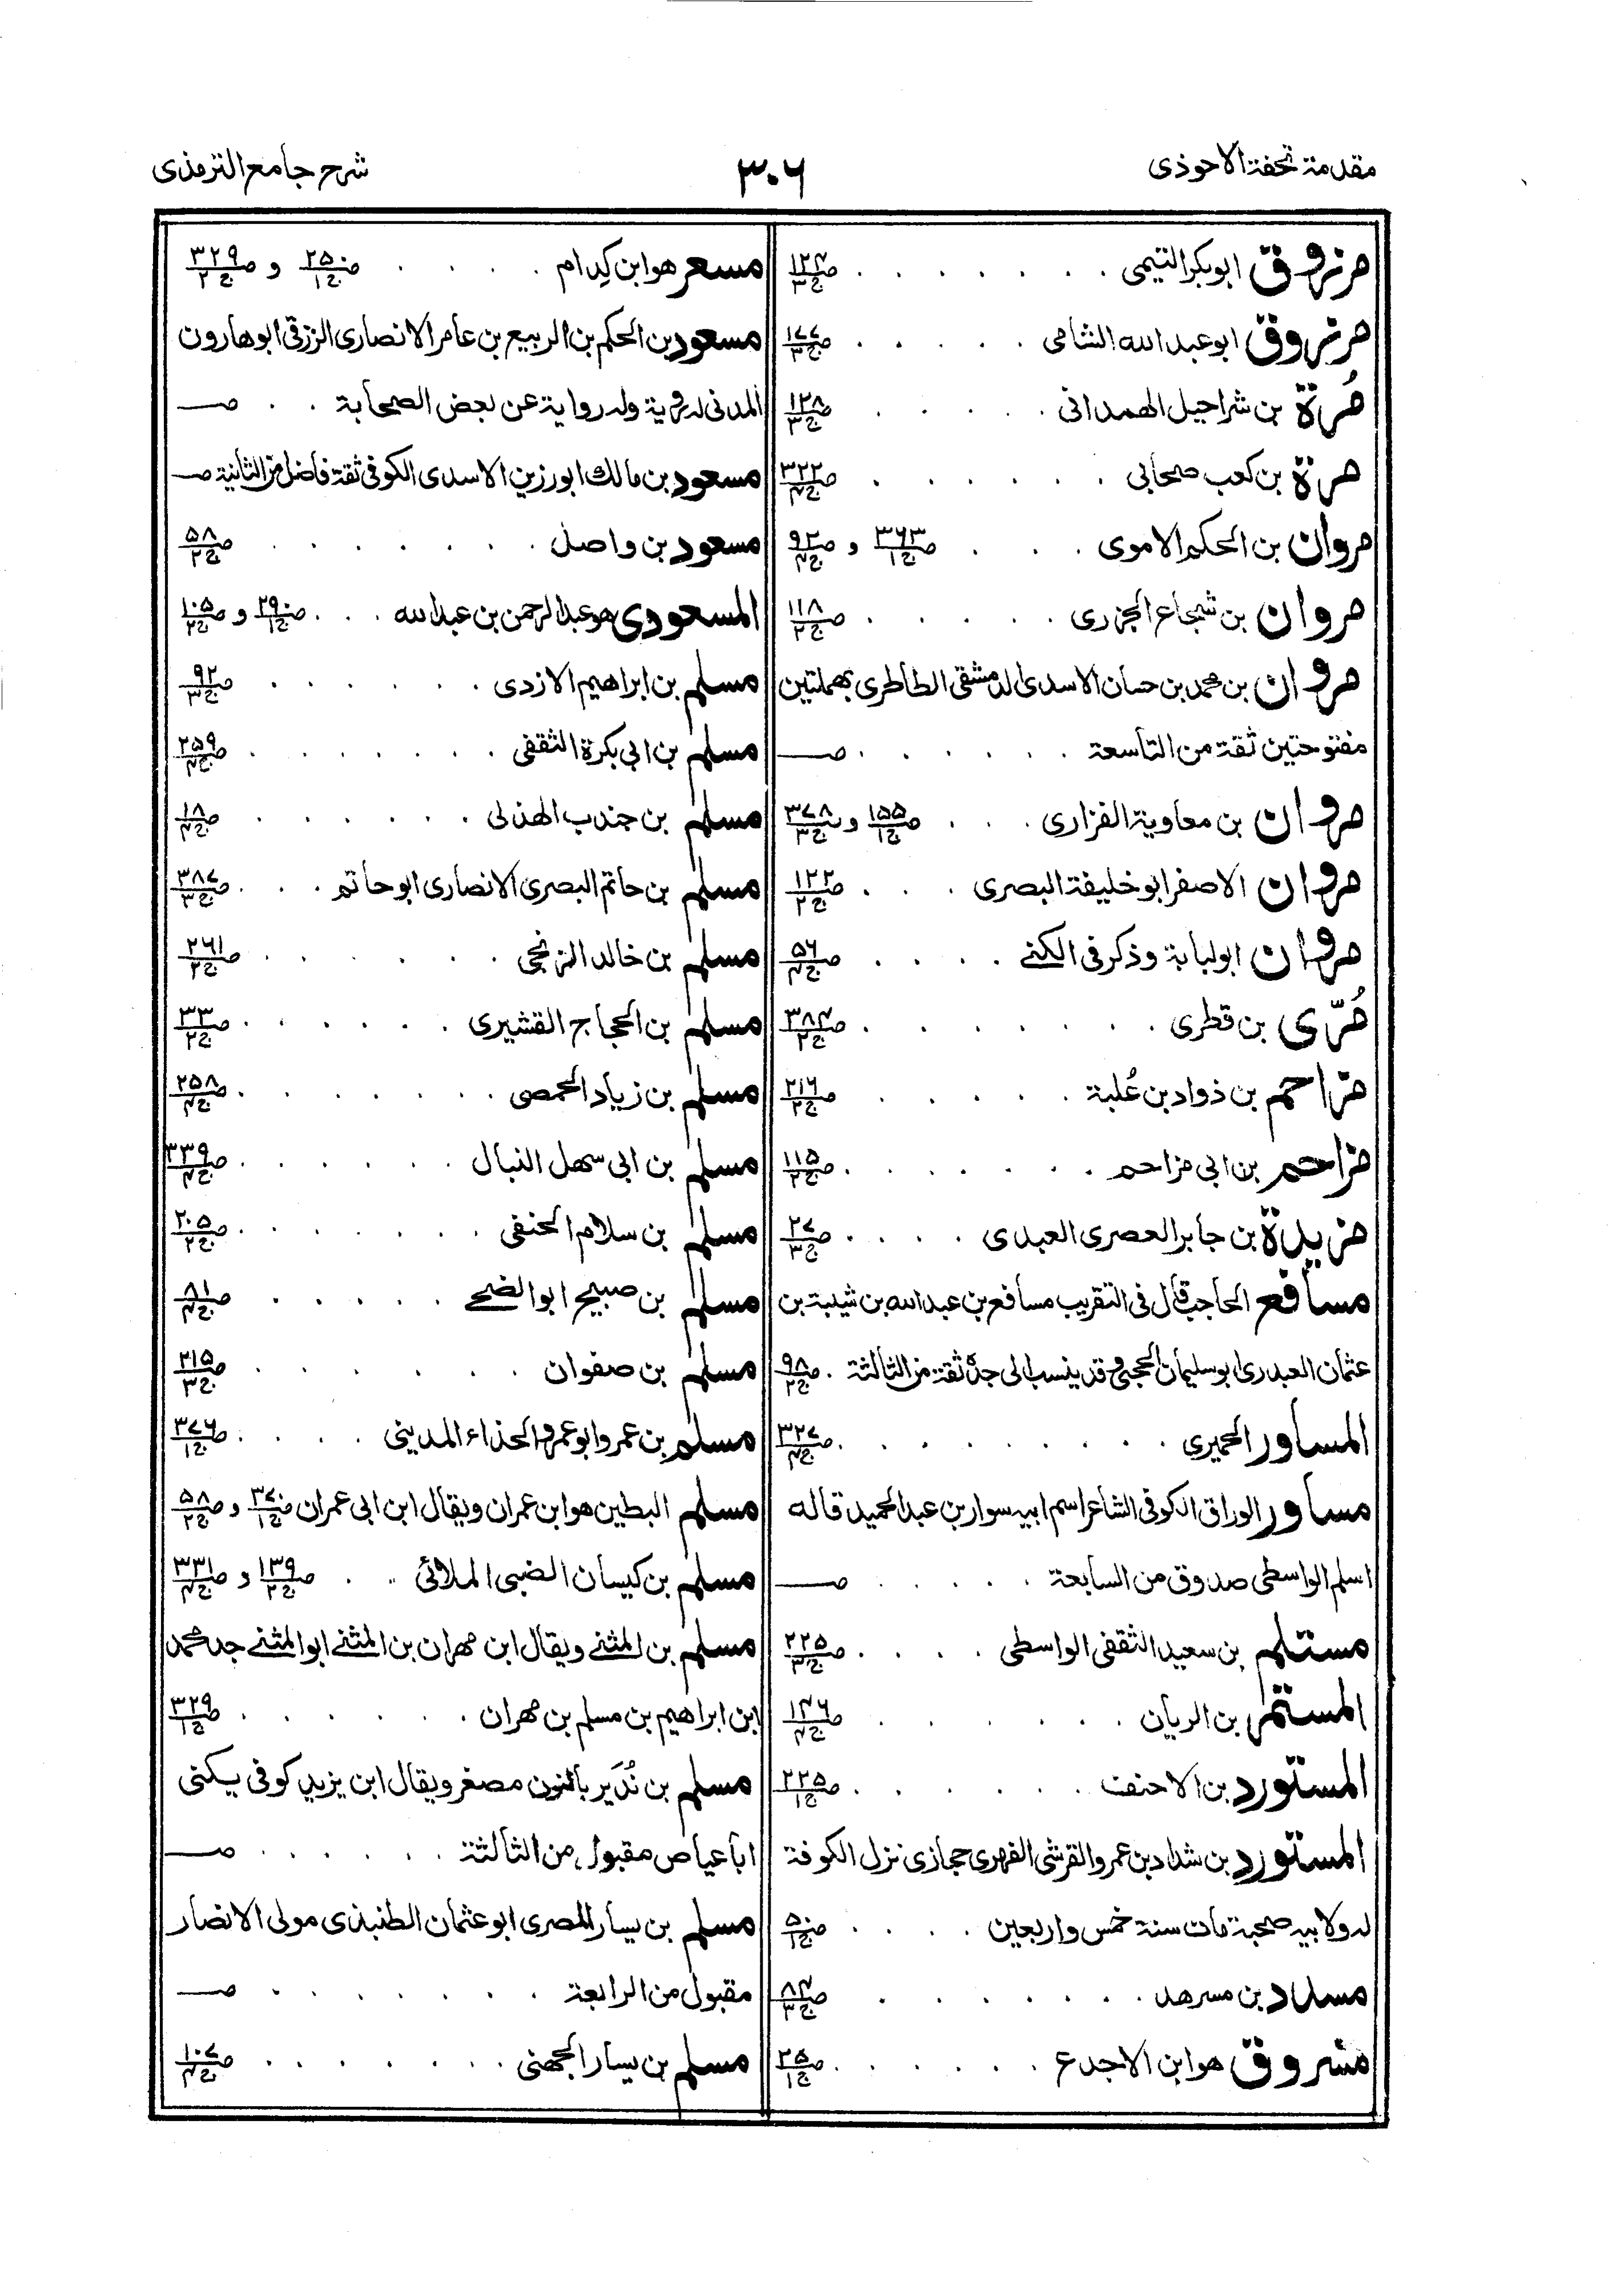 مقدمة تحفة الاحوذى
٣٠٦
شرح جامع الترمذى
مرزوق ابوبكر التيمى ص١٢٤ ج٣
مرزوق ابو عبد الله الشامى ص١٧٧ ج٣
مُرة بن شراحيل الهمدانى ص١٢٨ ج٣
مرة بن كعب صحابى ص٣٢٢ ج٤
مروان بن الحكم الاموى ص٣٦٣ ج١ و ص٩٢ ج٤
مروان بن شجاع الجزرى ص١١٨ ج٢
مروان بن محمد بن حسان الاسدى الدمشقى الطاطرى بمهملتين
مفتوحتين ثقة من التاسعة ص
مروان بن معاوية الفزارى ص١٥٥ ج١ و ص٣٧٨ ج٣
مروان الاصفر ابو خليفة البصرى ص١٢٢ ج٢
مروان ابو لبابة وذكر فى الكنے ص٥٦ ج٤
مُرّى بن قطرى ص٣٨٤ ج٢
مزاحم بن ذواد بن عُلبة ص٢١٦ ج٢
مزاحم بن ابى مزاحم ص١١٥ ج٢
مزيدة بن جابر العصرى العبدى ص٢٧ ج٣
مسافع الحاجب قال فى التقريب مسافع بن عبد الله بن شيبة بن
عثمان العبدرى ابو سليمان الحجبى وقد ينسب الى جده ثقة من الثالثة ص٩٨ ج٢
المساور الحميرى ص٣٢٧ ج٤
مساور الوراق الكوفى الشاعر اسم ابيه سوار بن عبد الحميد قاله
اسلم الواسطى صدوق من السابعة ص
مستلم بن سعيد الثقفى الواسطى ص٢٢٥ ج٣
المستمر بن الريان ص١٤٦ ج٤
المستورد بن الاحنف ص٢٢٥ ج١
المستورد بن شداد بن عمرو القرشى الفهرى حجازى نزل الكوفة
له ولابيه صحبة مات سنة خمس واربعين ص٥٠ ج١
مسدد بن مسرهد ص٨٤ ج٣
مسروق هو ابن الاجدع ص٢٥ ج١
مسعر هو ابن كِدام ص٢٥٠ ج١ و ص٣٢٩ ج٢
مسعود بن الحكم بن الربيع بن عامر الانصارى الزرقى ابو هارون
المدنى له رؤية وله رواية عن بعض الصحابة ص
مسعود بن مالك ابو رزين الاسدى الكوفى ثقة فاضل من الثانية ص
مسعود بن واصل ص٥٨ ج٢
المسعودى هو عبد الرحمن بن عبد الله ص٢٩٠ ج١ و ص١٠٥ ج٢
مسلم بن ابراهيم الازدى ص٩٢ ج٣
مسلم بن ابى بكرة الثقفى ص٢٥٩ ج٤
مسلم بن جندب الهذلى ص١٨ ج٤
مسلم بن حاتم البصرى الانصارى ابو حاتم ص٣٨٧ ج٣
مسلم بن خالد الزنجى ص٢٦١ ج٢
مسلم بن الحجاج القشيرى ص٣٣ ج٢
مسلم بن زياد الحمصى ص٢٥٨ ج٤
مسلم بن ابى سهل النبال ص٣٣٩ ج٤
مسلم بن سلام الحنفى ص٢٠٥ ج٢
مسلم بن صبيح ابو الضحے ص٨١ ج٤
مسلم بن صفوان ص٢١٥ ج٣
مسلم بن عمرو ابو عمرو الحذاء المدينى ص٣٧٦ ج١
مسلم البطين هو ابن عمران ويقال ابن ابى عمران ص٣٧٠ ج١ و ص٥٨ ج٢
مسلم بن كيسان الضبى الملائى ص١٣٩ ج٢ و ص٣٣١ ج٤
مسلم بن المثنے ويقال ابن مهران بن المثنے ابو المثنے جد محمد
ابن ابراهيم بن مسلم بن مهران ص٣٢٩ ج١
مسلم بن نُدَير بالنون مصغر ويقال ابن يزيد كوفى يكنى
ابا عياض مقبول من الثالثة ص
مسلم بن يسار المصرى ابو عثمان الطنبذى مولى الانصار
مقبول من الرابعة ص
مسلم بن يسار الجهنى ص١٠٧ ج٤